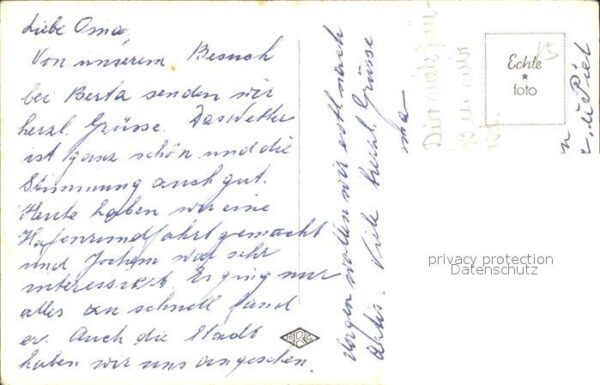 Liebe Oma,
Von unserem Besuch
bei Berta senden wir
herzl. Grüsse. Das Wetter
ist ganz schön und die
Stimmung auch gut.
Heute haben wir eine
Hafenrundfahrt gemacht
und Jochem war sehr
interessiert. Er ging nur
alles zu schnell fand
er. Auch die Stadt
haben wir uns angesehen.
Morgen wollen wir evtl. nach
Viele herzl. Grüsse
Echte
foto
privacy protection
Datenschutz